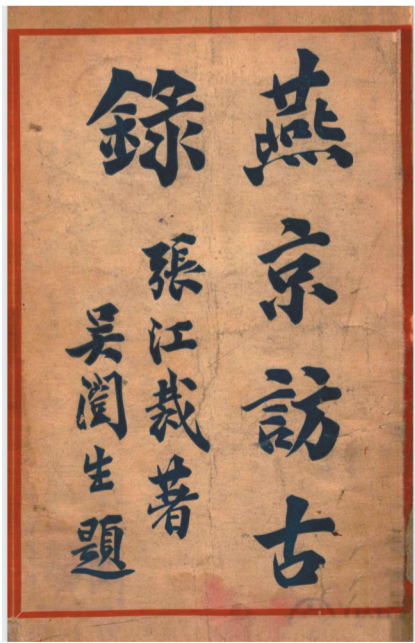 燕京訪古
錄
張江裁著
吴闓生題